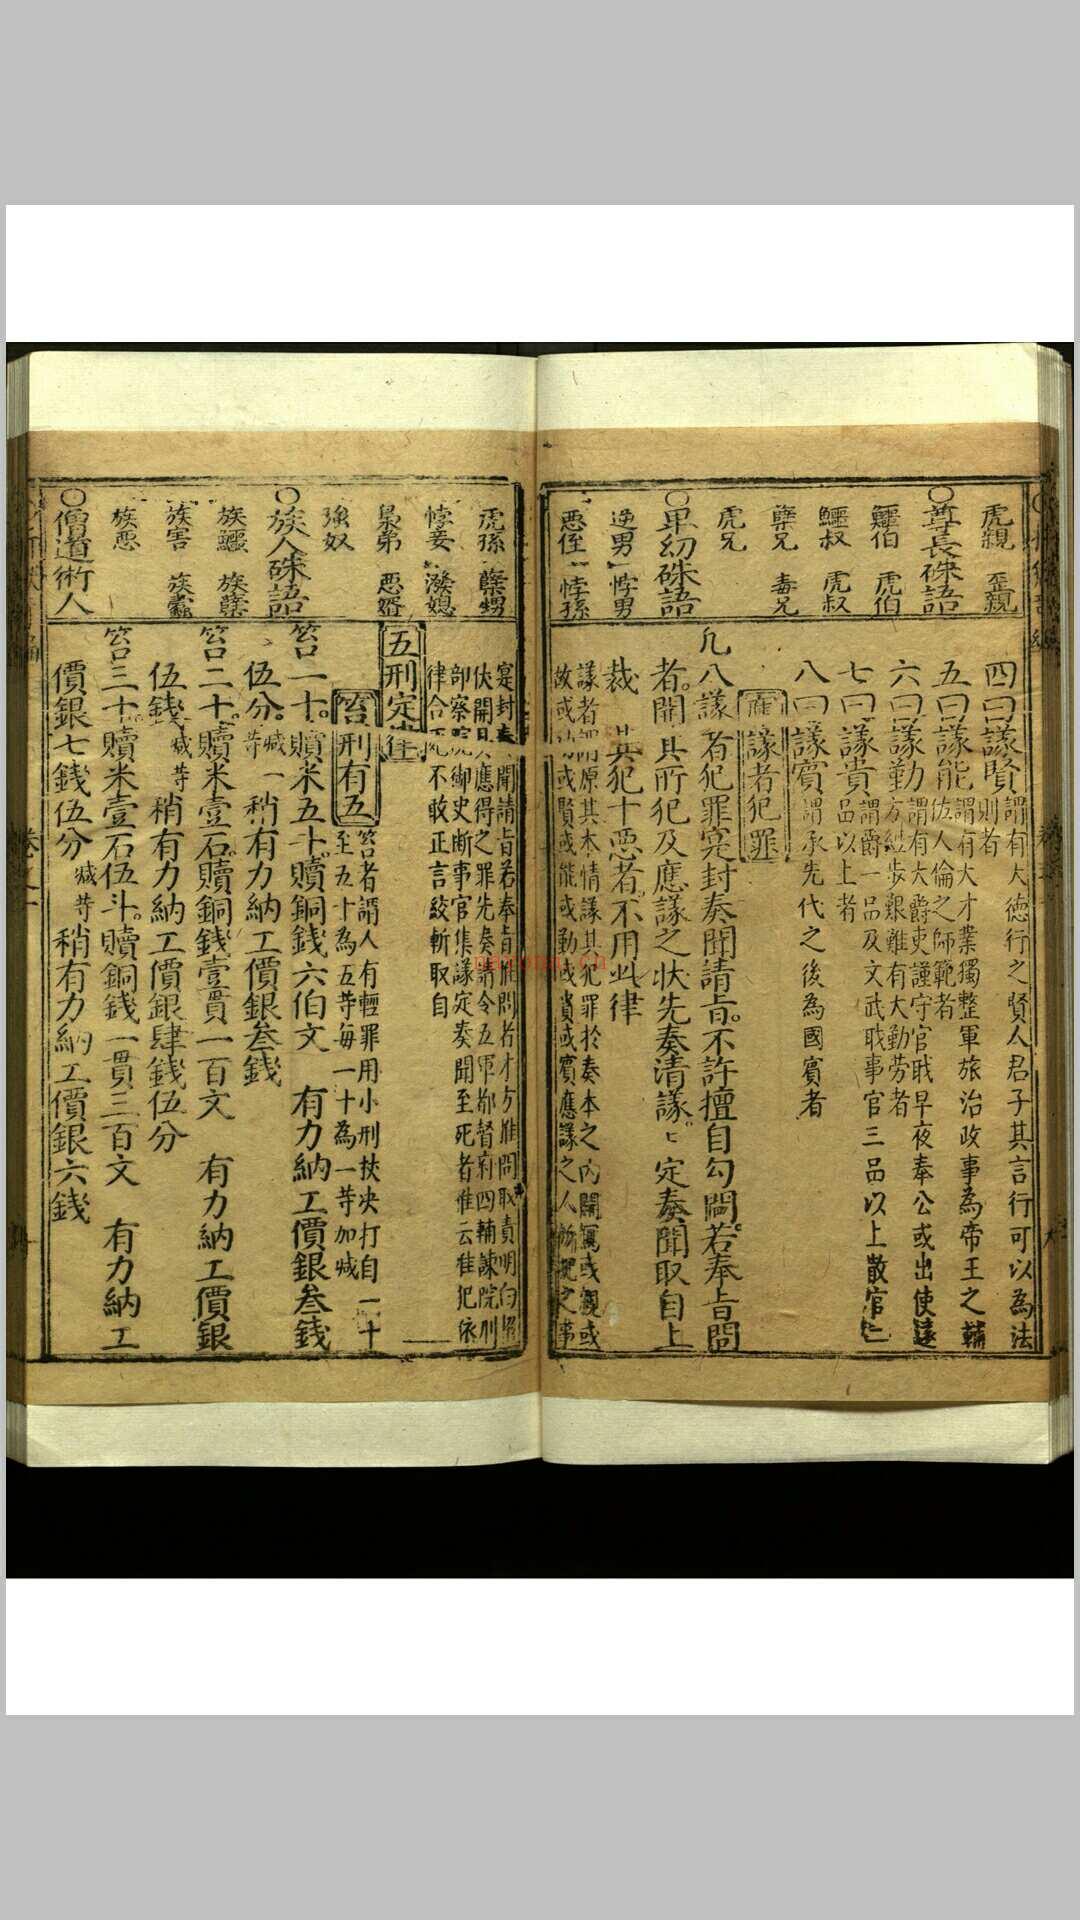 虎親　歪親
○尊長硃語
鱷伯　虎伯
鱷叔　虎叔
孽兄　毒兄
虎兄
○卑幼硃語
逆男　悖男
惡侄　悖孫
四曰議賢謂有大德行之賢人君子其言行可以為法
則者
五曰議能謂有大才業獨整軍旅治政事為帝王之輔
佐人倫之師範者
六曰議勤謂有大爵吏謹守官職早夜奉公或出使遠
方經步艱難有大勤勞者
七曰議貴謂爵一品及文武職事官三品以上散官二
品以上者
八曰議賓謂承先代之後為國賓者
議者犯罪
凡八議者犯罪寔封奏聞請旨。不許擅自勾問。若奉旨問
者。開具所犯及應議之狀先奏請議。定奏聞取自上
裁　其犯十惡者。不用此律
議者謂原其本情議其犯罪於奏本之內開寫或親或
故或功或賢或能或勤或貴或賓應議之人所犯之事
虎孫　孽甥
悖妾　潑媳
梟弟　惡婿
強奴
○族人硃語
族鱷　族孽
族害　族蠹
族惡
○僧道術人
寔封奏聞請旨若奉旨推問者才方推問取責明白招
伏開具應得之罪先奏請令五軍都督府四輔諫院刑
部察院御史斷事官集議定奏聞至死者惟云准犯依
律合死不敢正言絞斬取自
五刑定律
笞刑有五笞者謂人有輕罪用小刑挾决打自一十
至五十為五等每一十為一等加減
笞一十。贖米五十。贖銅錢六伯文　有力納工價銀叁錢
伍分。減等一　稍有力納工價銀叁錢
笞二十。贖米壹石。贖銅錢壹貫一百文　有力納工價銀
伍錢減等　稍有力納工價銀肆錢伍分
笞三十。贖米壹石伍斗。贖銅錢一貫三百文　有力納工
價銀七錢伍分減等　稍有力納工價銀六錢